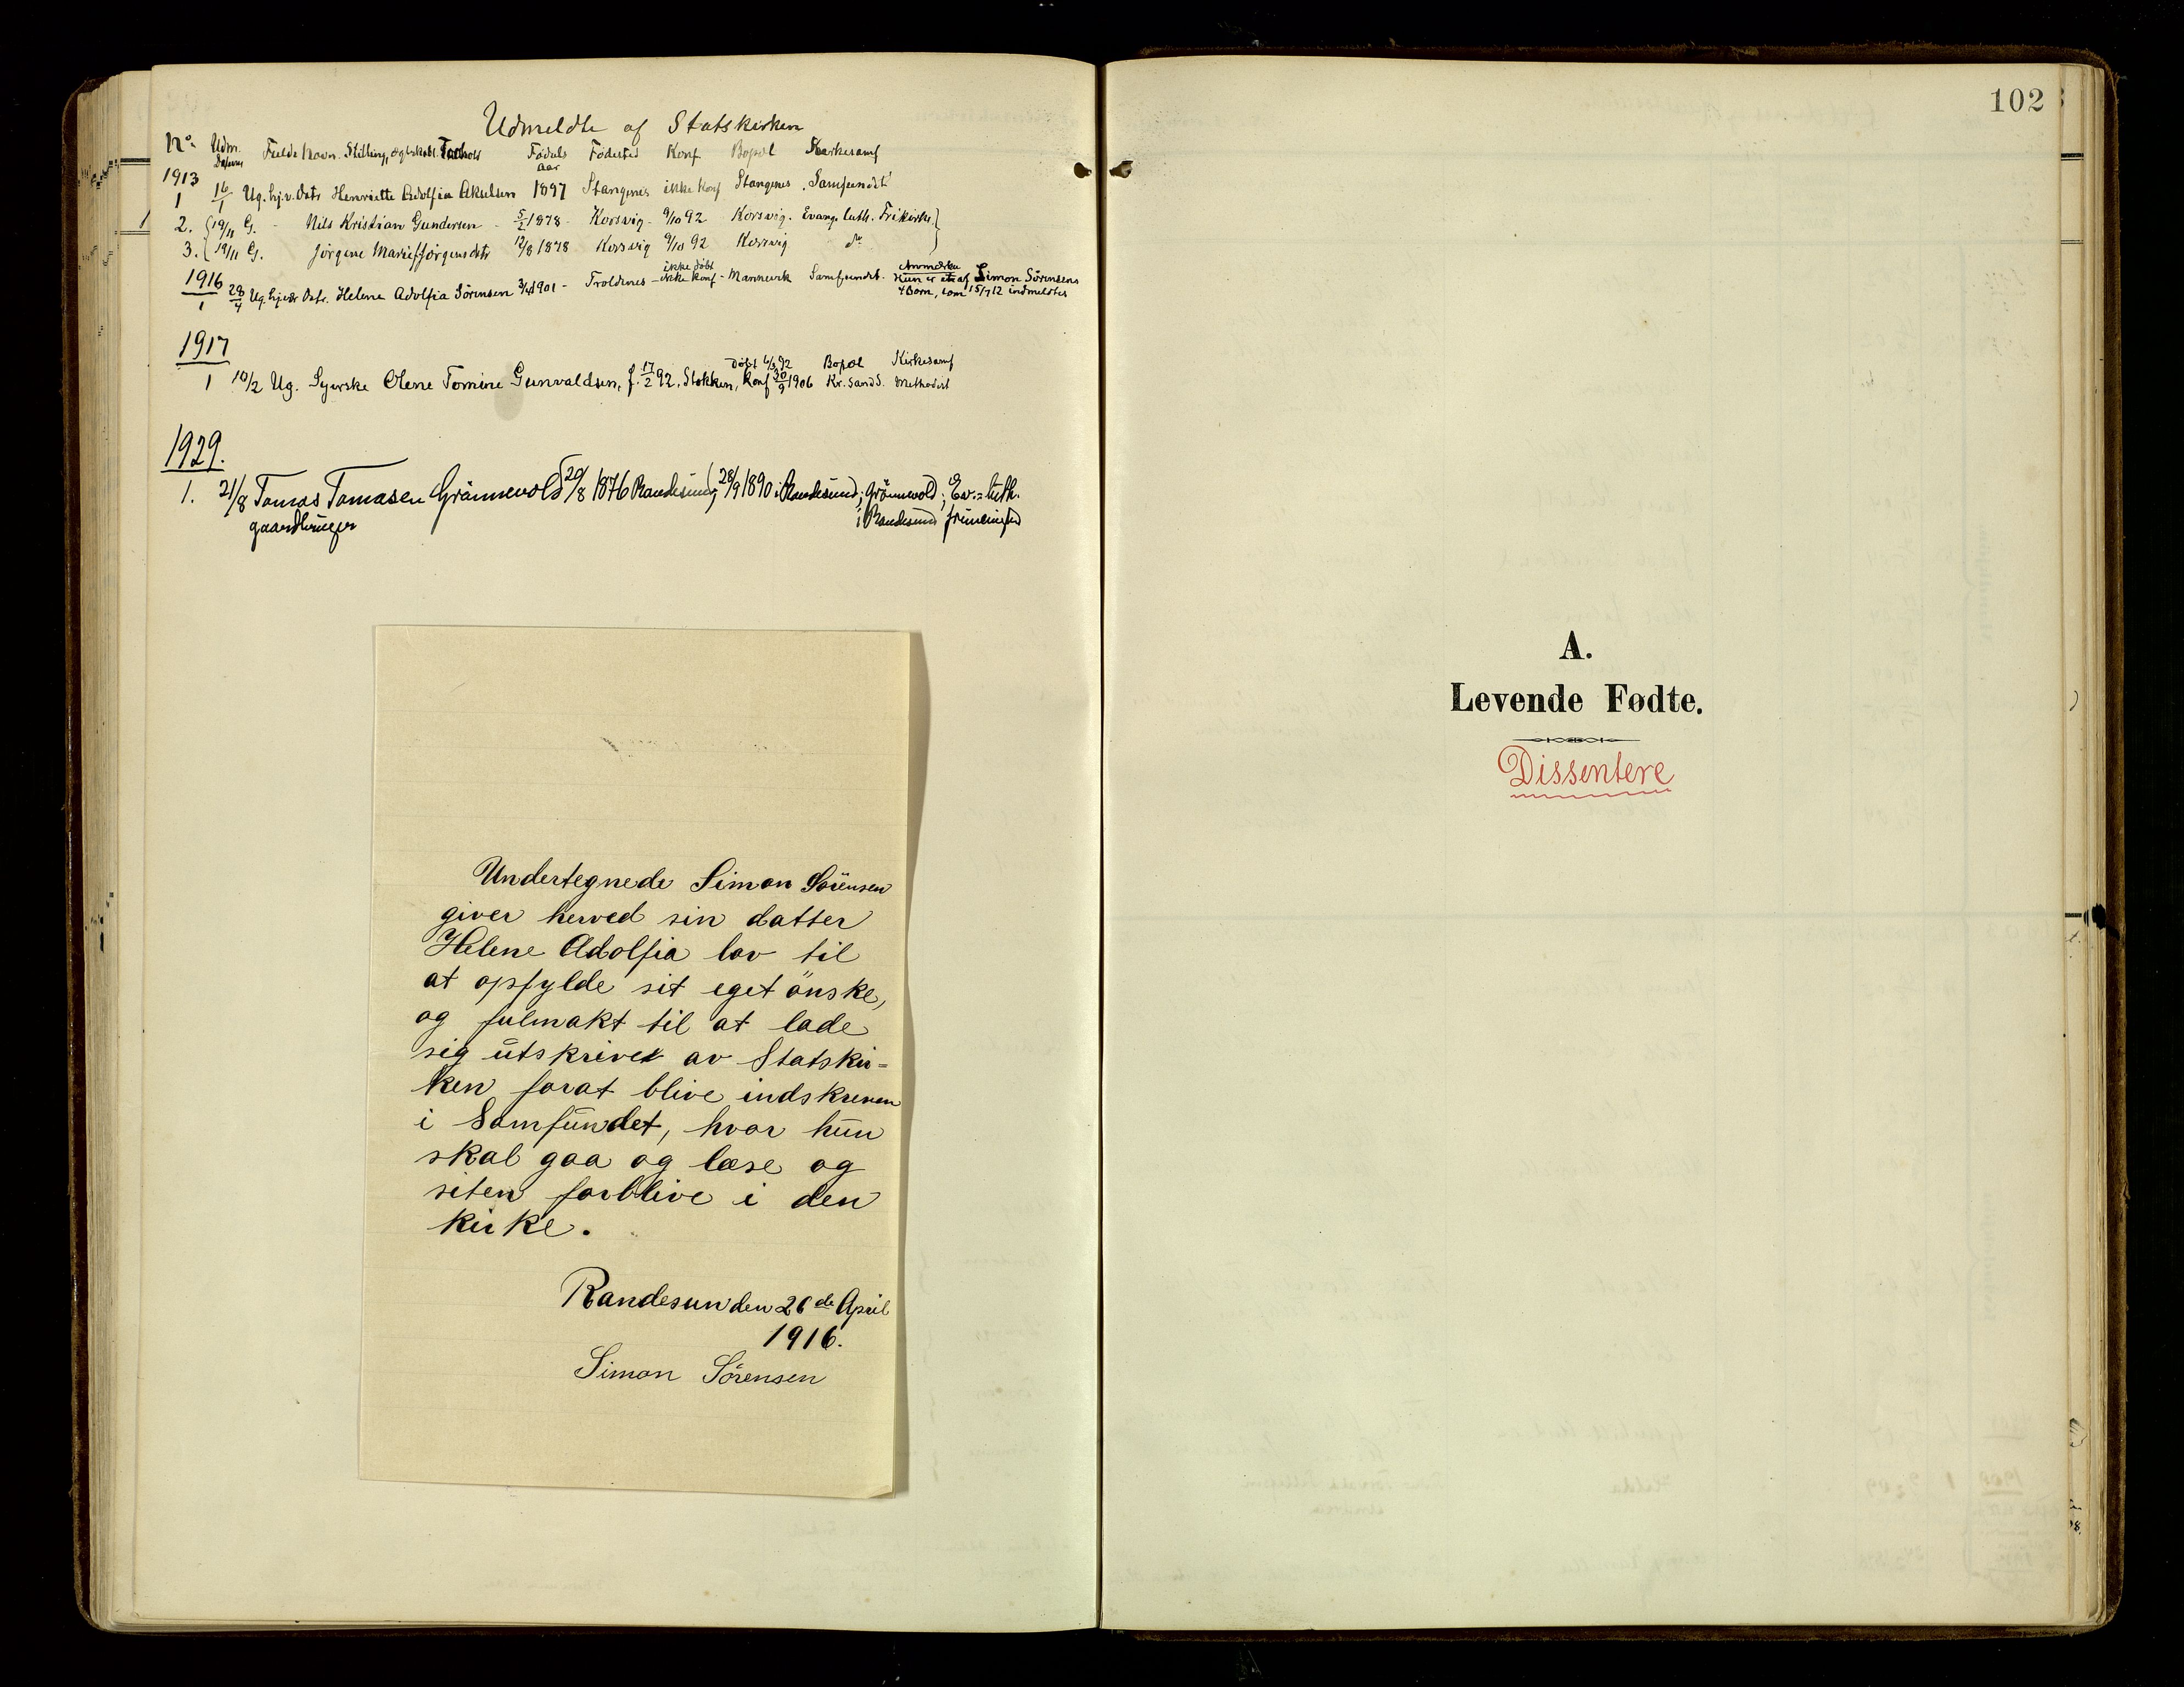 Udmeldte af Statskirken
No Udm. Datum Fulde Navn. Stilling, ægteskabl. Forhold Fødsels Aar Fødested Konf Bopæl Kirkesamf
1913
1 16/1 Ug. hj.v. Datr Henriette Adolfia Akselsen 1897 Stangenes ikke Konf Stangenes. Samfundet
2. 19/11 G. - Nils Kristian Gundersen - 5/2 1878 - Korsvig - 9/10 92 Korsvig. Evang. luth. Frikirke.
3. 19/11 G. Jörgine Marie Jörgensdtr 12/8 1878 Korsvig 9/10 92 Korsvig do
1916
1 28/4 Ug. hjemv Datr. Helene Adolfia Sörensen 3/4 1901 - Troldnes - ikke döbt ikke konf - Mannevik Samfundet. Anmærkn Hun er et af Simon Sörensens
4 Børn, som 15/7 12 indmeldtes
1917
Döbt 6/3 92 Bopæl Kirkesamf
1 10/2 Ug. Syerske Olene Tomine Gunvaldsen, f. 17/2 92. Stokken, Konf 30/9 1906 Kr. Sand S. Methodist
1929.
1. 21/8 Tomas Tomasen Grönnevold 20/8 1876 Randesund, 28/9 1890 i Randesund; Grönnevold; Ev.=luth.
gaardbruger i Randesund frimenighed
Undertegnede Simon Sörensen
giver herved sin datter
Helene Adolfia lov til
at opfylde sit eget önske,
og fulmakt til at lade
sig utskrivet av Statskir=
ken forat blive indskreven
i Samfundet, hvor hun
skal gaa og læse og
siten forblive i den
kirke.
Randesun den 26de April
1916.
Simon Sörensen
102
A.
Levende Fødte.
Dissentere